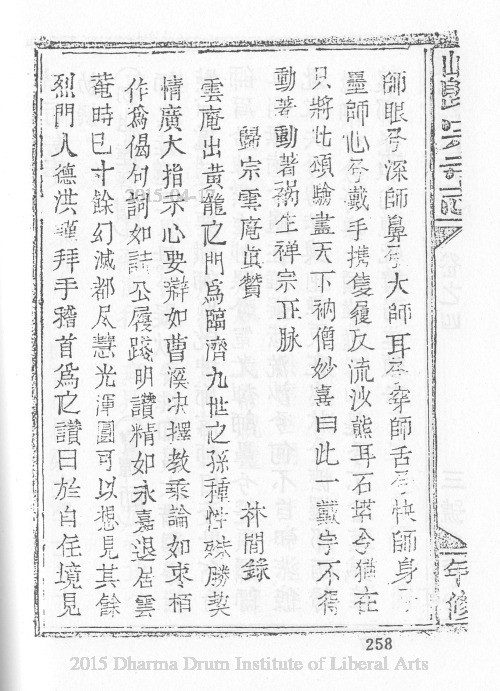 師眼兮深師鼻兮大師耳兮穿師舌兮快師身兮
墨師心兮戴手携隻履反流沙熊耳石塔兮猶在
只將此頌驗盡天下衲僧妙喜曰此一戴字不得
動著動著喪生禅宗正脉
歸宗雲庵真贊 林間錄
雲庵出黃龍之門爲臨濟九世之孫種性殊勝契
情廣大指示心要辯如曹溪决擇教乘論如棗栢
作爲偈句詞如誌公履踐明讚精如永嘉退居雲
菴時已寸餘幻滅都尽慧光渾圓可以想見其餘
烈門人德洪謹拜手稽首爲之讚曰於自住境見
年修
258
2015-04-1
2015 Dharma Drum Institute of Liberal Arts